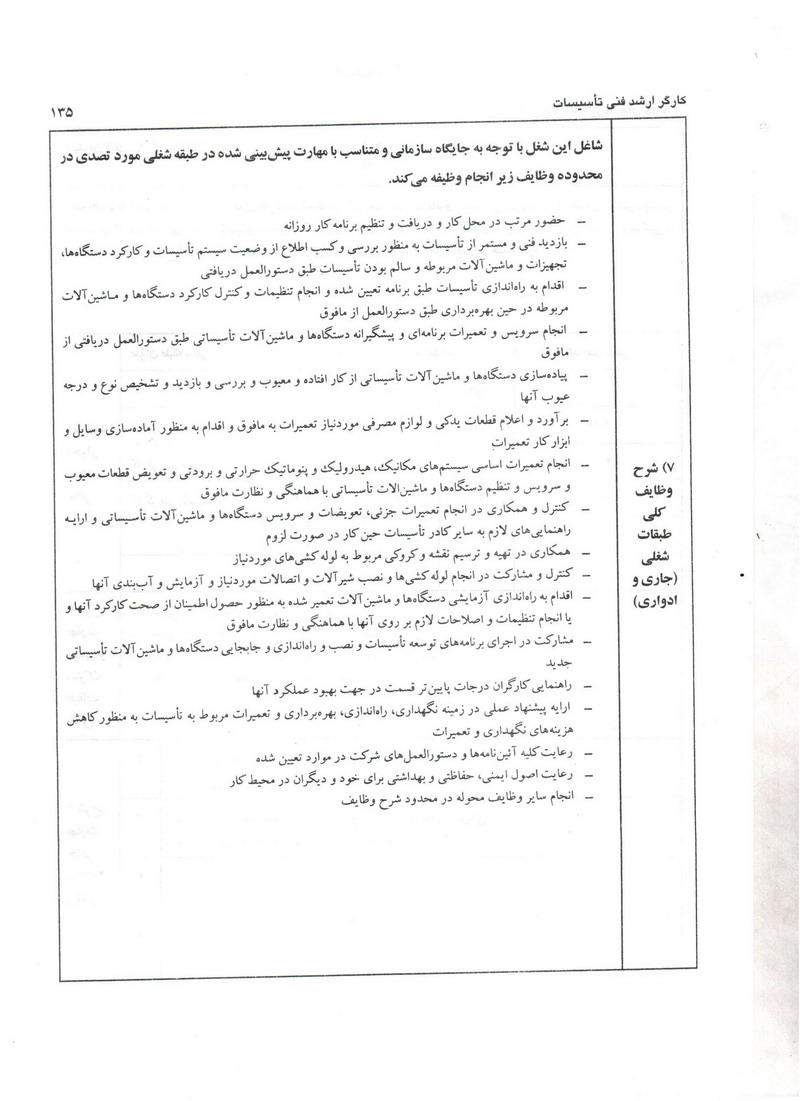 کارگر ارشد فنی تأسیسات
۱۳۵
۷) شرح
وظایف
کلی
طبقات
شغلی
(جاری و
ادواری)
شاغل این شغل با توجه به جایگاه سازمانی و متناسب با مهارت پیش‌بینی شده در طبقه شغلی مورد تصدی در
محدوده وظایف زیر انجام وظیفه می‌کند.
– حضور مرتب در محل کار و دریافت و تنظیم برنامه کار روزانه
– بازدید فنی و مستمر از تأسیسات به منظور بررسی و کسب اطلاع از وضعیت سیستم تأسیسات و کارکرد دستگاه‌ها،
تجهیزات و ماشین‌آلات مربوطه و سالم بودن تأسیسات طبق دستورالعمل دریافتی
– اقدام به راه‌اندازی تأسیسات طبق برنامه تعیین شده و انجام تنظیمات و کنترل کارکرد دستگاه‌ها و ماشین‌آلات
مربوطه در حین بهره‌برداری طبق دستورالعمل از مافوق
– انجام سرویس و تعمیرات برنامه‌ای و پیشگیرانه دستگاه‌ها و ماشین‌آلات تأسیساتی طبق دستورالعمل دریافتی از
مافوق
– پیاده‌سازی دستگاه‌ها و ماشین‌آلات تأسیساتی از کار افتاده و معیوب و بررسی و بازدید و تشخیص نوع و درجه
عیوب آنها
– برآورد و اعلام قطعات یدکی و لوازم مصرفی موردنیاز تعمیرات به مافوق و اقدام به منظور آماده‌سازی وسایل و
ابزار کار تعمیرات
– انجام تعمیرات اساسی سیستم‌های مکانیک، هیدرولیک و پنوماتیک حرارتی و برودتی و تعویض قطعات معیوب
و سرویس و تنظیم دستگاه‌ها و ماشین‌الات تأسیساتی با هماهنگی و نظارت مافوق
– کنترل و همکاری در انجام تعمیرات جزئی، تعویضات و سرویس دستگاه‌ها و ماشین‌آلات تأسیساتی و ارایه
راهنمایی‌های لازم به سایر کادر تأسیسات حین کار در صورت لزوم
– همکاری در تهیه و ترسیم نقشه و کروکی مربوط به لوله کشی‌های موردنیاز
– کنترل و مشارکت در انجام لوله کشی‌ها و نصب شیرآلات و اتصالات موردنیاز و آزمایش و آب‌بندی آنها
– اقدام به راه‌اندازی آزمایشی دستگاه‌ها و ماشین‌آلات تعمیر شده به منظور حصول اطمینان از صحت کارکرد آنها و
یا انجام تنظیمات و اصلاحات لازم بر روی آنها با هماهنگی و نظارت مافوق
– مشارکت در اجرای برنامه‌های توسعه تأسیسات و نصب و راه‌اندازی و جابجایی دستگاه‌ها و ماشین‌آلات تأسیساتی
جدید
– راهنمایی کارگران درجات پایین‌تر قسمت در جهت بهبود عملکرد آنها
– ارایه پیشنهاد عملی در زمینه نگهداری، راه‌اندازی، بهره‌برداری و تعمیرات مربوط به تأسیسات به منظور کاهش
هزینه‌های نگهداری و تعمیرات
– رعایت کلیه آئین‌نامه‌ها و دستورالعمل‌های شرکت در موارد تعیین شده
– رعایت اصول ایمنی، حفاظتی و بهداشتی برای خود و دیگران در محیط کار
– انجام سایر وظایف محوله در محدود شرح وظایف